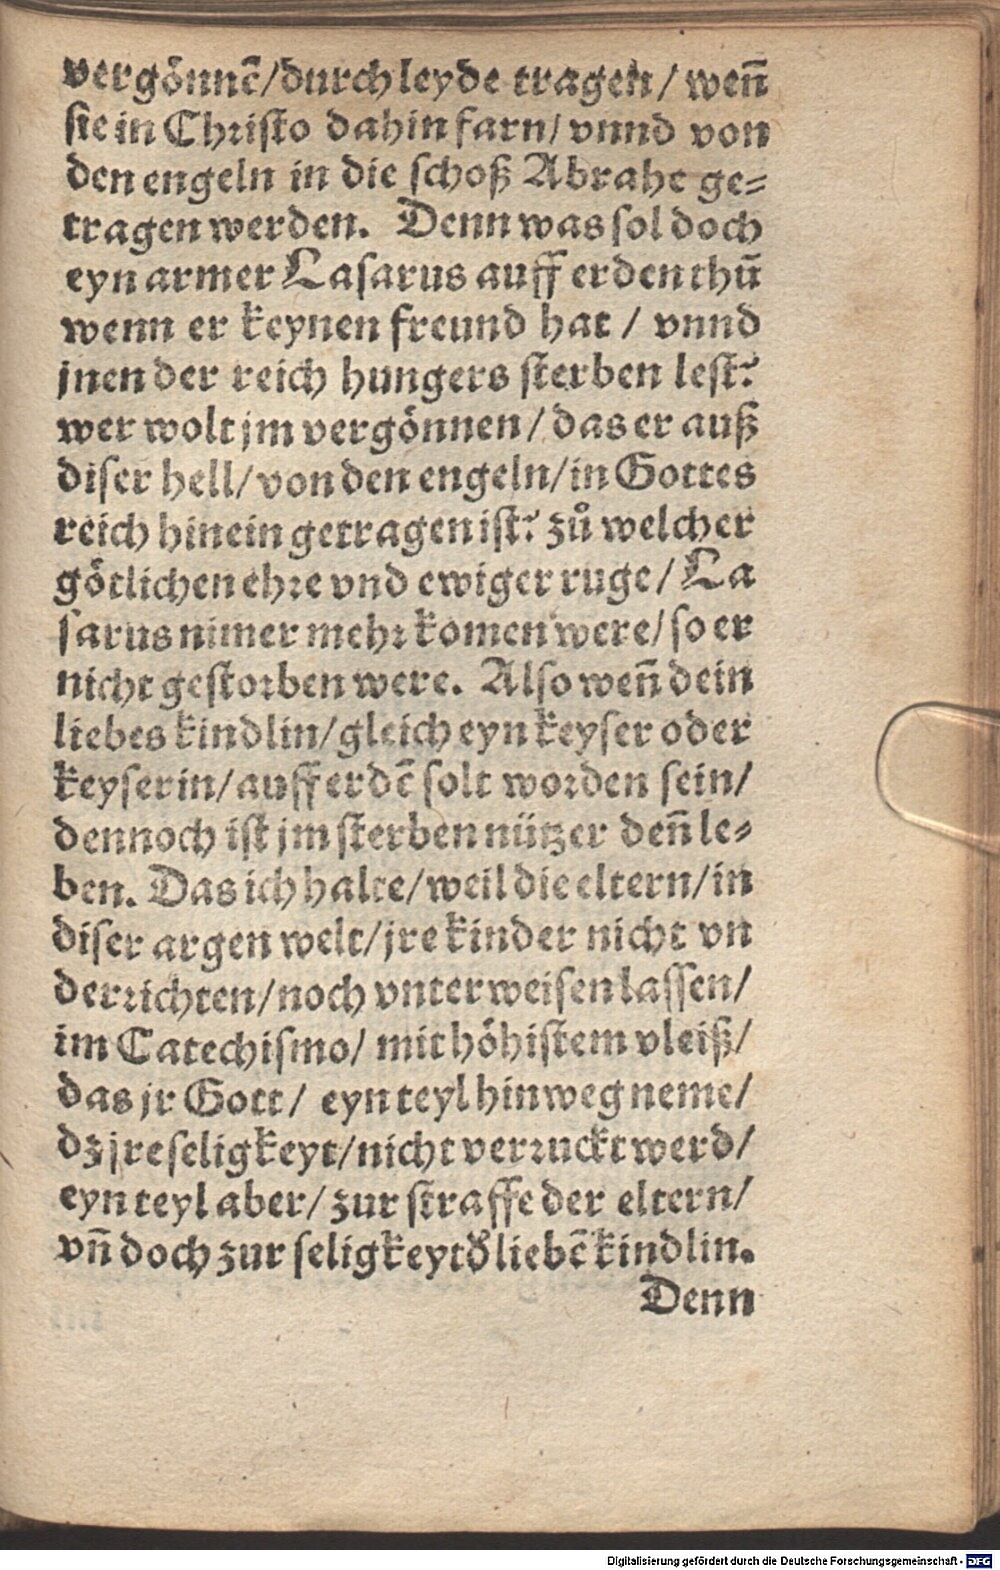 vergönnē/durch leyde tragen/ weñ
sie in Christo dahin farn/ vnnd von
den engeln in die schoß Abrahe ge⸗
tragen werden. Denn was sol doch
eyn armer Lasarus auff erden thū
wenn er keynen freund hat / vnnd
jnen der reich hungers sterben lest?
wer wolt jm vergönnen/ das er auß
diser hell/ von den engeln/ in Gottes
reich hinein getragen ist? zů welcher
götlichen ehre vnd ewiger ruge/ La
sarus nimer mehr komen were/ so er
nicht gestorben were. Also weñ dein
liebes kindlin/ gleich eyn keyser oder
keyserin/ auff erdē solt worden sein/
dennoch ist jm sterben nützer deñ le⸗
ben. Das ich halte/ weil die eltern/ in
diser argen welt/ jre kinder nicht vn
derrichten/ noch vnterweisen lassen/
im Catechismo/ mit höhistem vleiß/
das jr Gott/ eyn teyl hinweg neme/
dz jre seligkeyt/ nicht verruckt werd/
eyn teyl aber/ zur straffe der eltern/
vñ doch zur seligkeyt d̕ liebē kindlin.
Denn
Digitalisierung gefördert durch die Deutsche Forschungsgemeinschaft - DFG